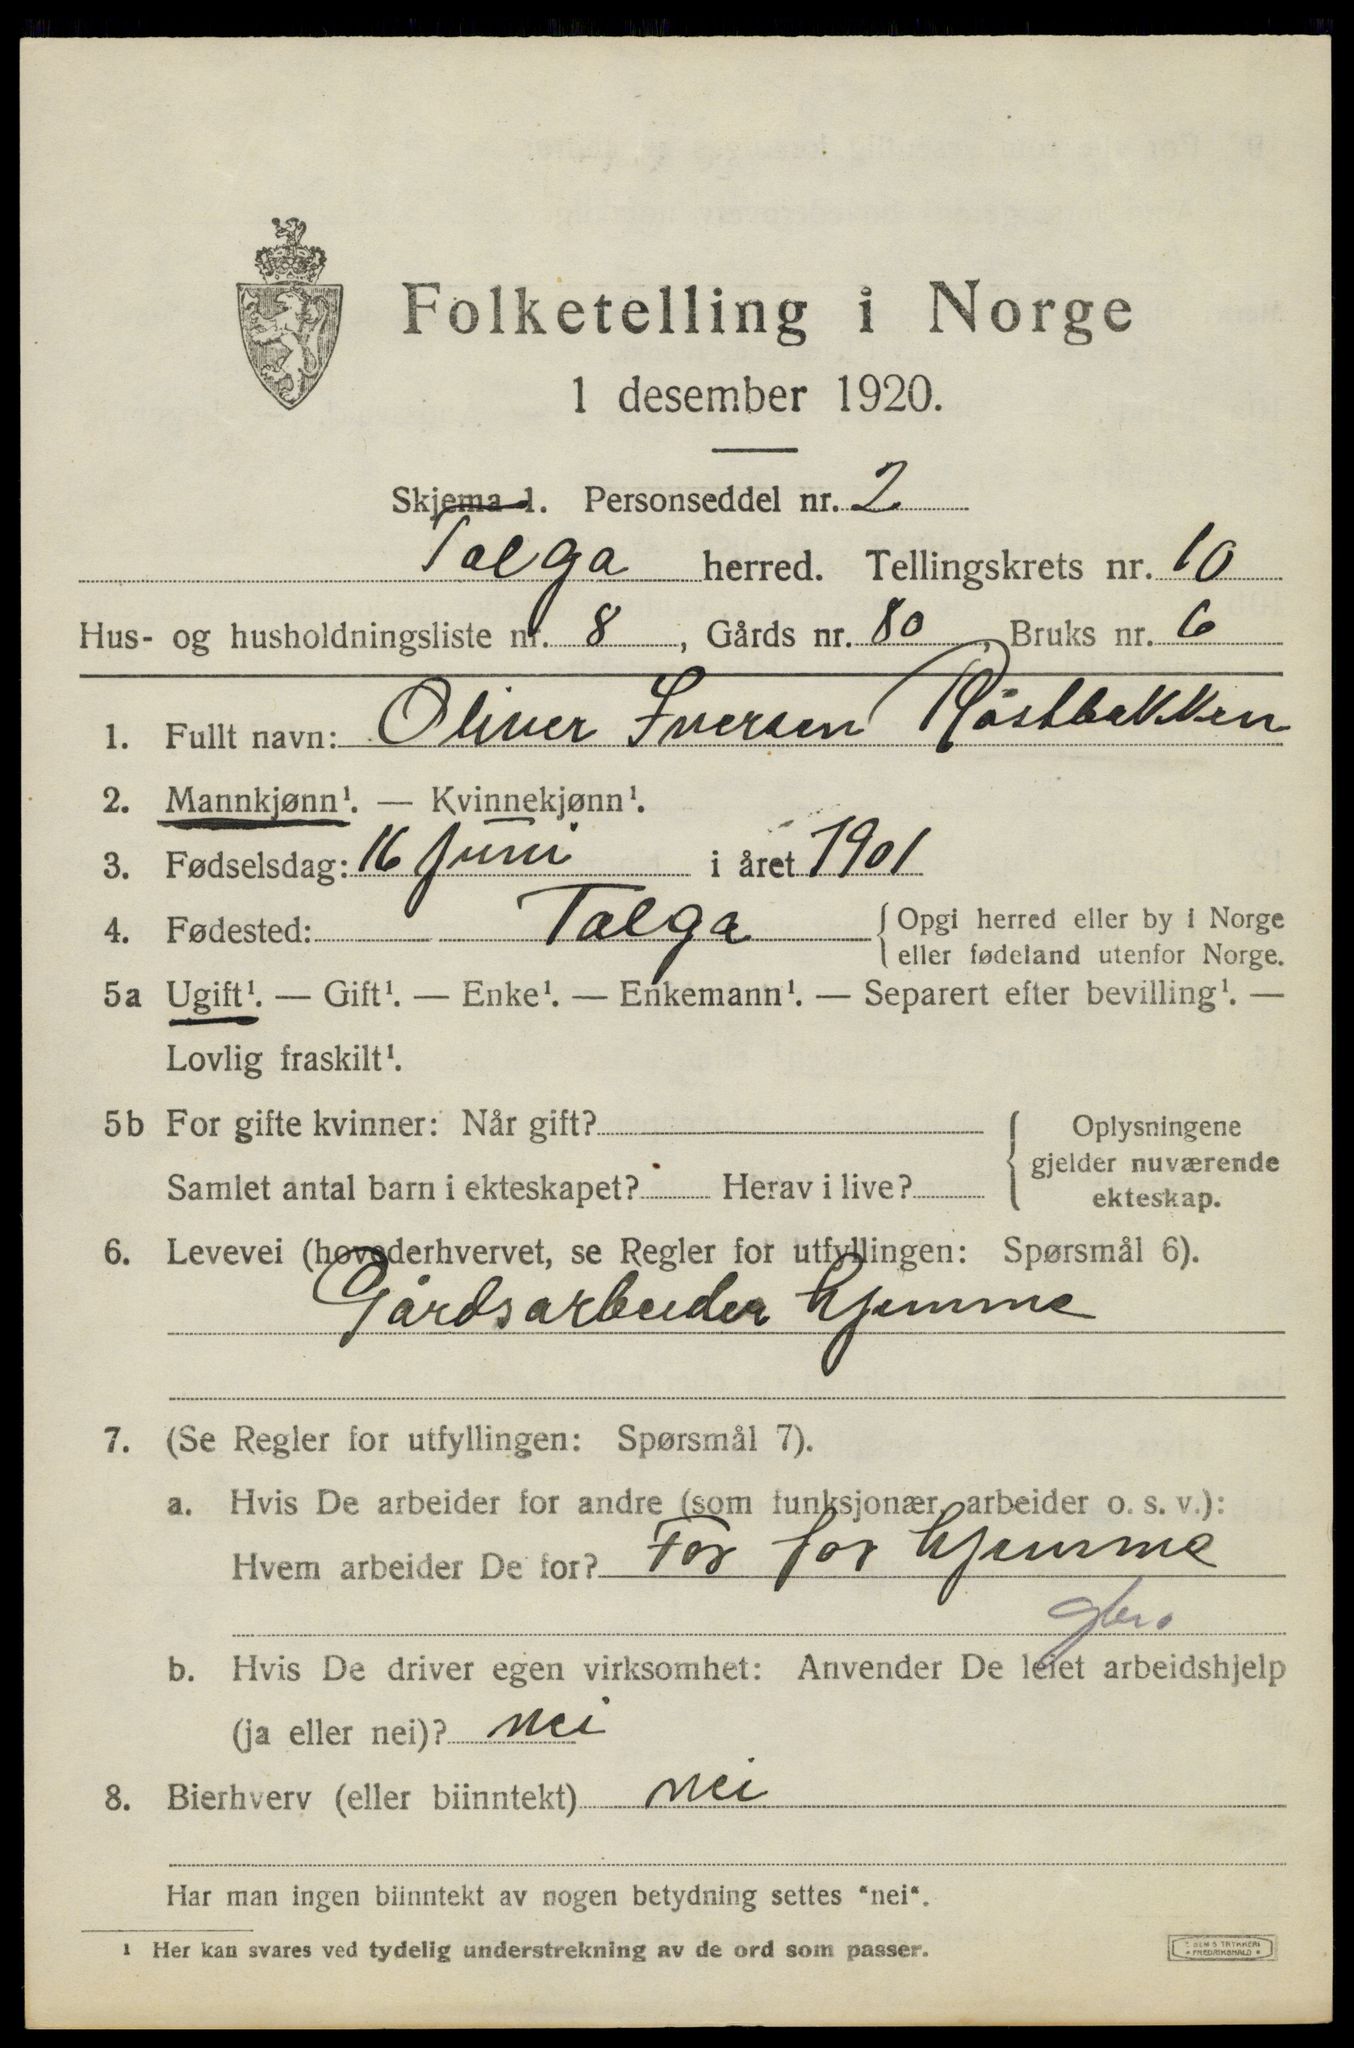 Folketelling i Norge
1 desember 1920.
Skjema 1. Personseddel nr. 2
Tolga herred. Tellingskrets nr. 10
Hus- og husholdningsliste nr. 8, Gårds nr. 80 Bruks nr. 6
1. Fullt navn: Oliver Iversen Røstbakken
2. Mannkjønn¹. — Kvinnekjønn¹.
3. Fødselsdag: 16 juni i året 1901
4. Fødested: Tolga {Opgi herred eller by i Norge
eller fødeland utenfor Norge.
5a Ugift¹. — Gift¹. — Enke¹. — Enkemann¹. — Separert efter bevilling¹. —
Lovlig fraskilt¹.
5b For gifte kvinner: Når gift?
Samlet antal barn i ekteskapet? Herav i live?
Oplysningene
gjelder nuværende
ekteskap.
6. Levevei (hovederhvervet, se Regler for utfyllingen: Spørsmål 6).
Gårdsarbeider hjemme
7. (Se Regler for utfyllingen: Spørsmål 7).
a. Hvis De arbeider for andre (som funksjonær, arbeider o. s. v.):
Hvem arbeider De for? For far hjemme
b. Hvis De driver egen virksomhet: Anvender De leiet arbeidshjelp
(ja eller nei)? nei
8. Bierhverv (eller biinntekt) nei
Har man ingen biinntekt av nogen betydning settes "nei".
1 Her kan svares ved tydelig understrekning av de ord som passer.